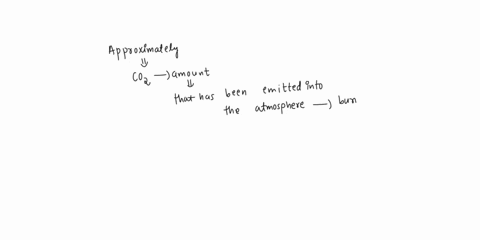 Approximately
⇓
CO2 → amount
⇓
that has been emitted into
the atmosphere → burn